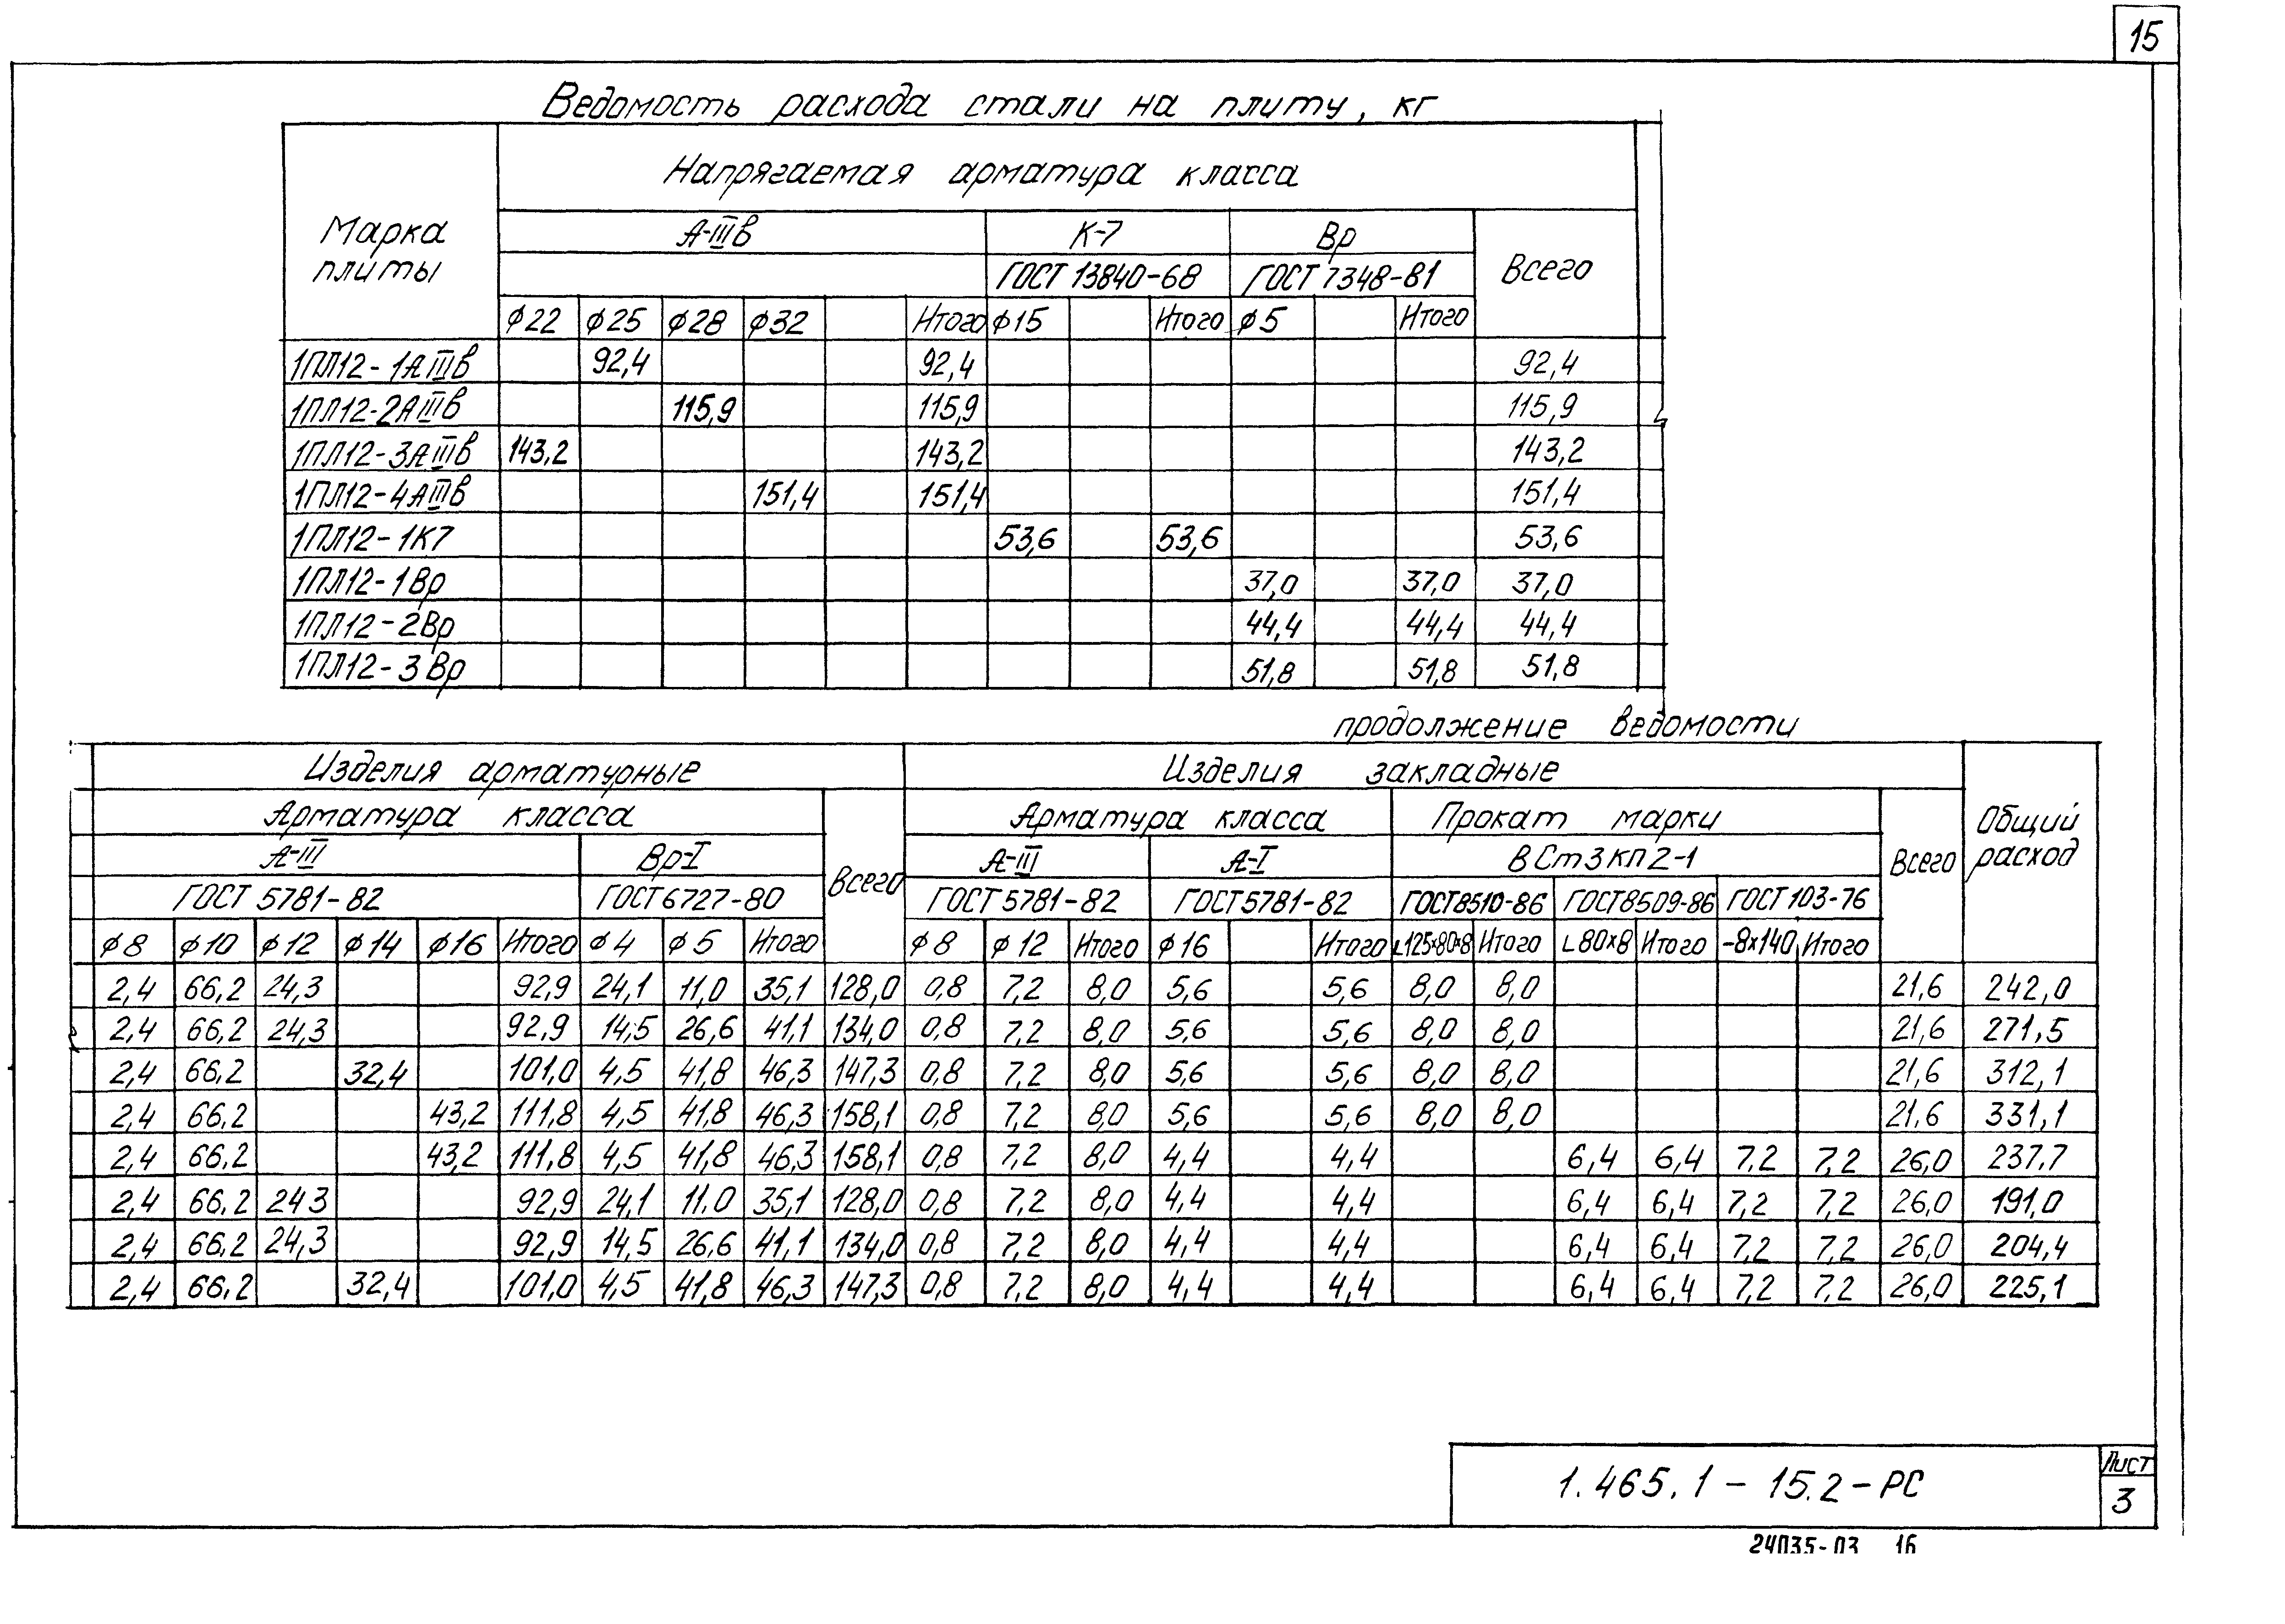 15
Ведомость расхода стали на плиту, кг
Марка плиты
Напрягаемая арматура класса
А-IIIв К-7 Вр Всего
ГОСТ 13840-68 ГОСТ 7348-81
ф22 ф25 ф28 ф32 Итого ф15 Итого ф5 Итого
1ПЛ12-1АIIIв 92,4 92,4 92,4
1ПЛ12-2АIIIв 115,9 115,9 115,9
1ПЛ12-3АIIIв 143,2 143,2 143,2
1ПЛ12-4АIIIв 151,4 151,4 151,4
1ПЛ12-1К7 53,6 53,6 53,6
1ПЛ12-1Вр 37,0 37,0 37,0
1ПЛ12-2Вр 44,4 44,4 44,4
1ПЛ12-3Вр 51,8 51,8 51,8
продолжение ведомости
Изделия арматурные Изделия закладные Общий расход
Арматура класса Всего Арматура класса Прокат марки Всего
А-III Вр-I А-III А-I ВСт3кп2-1
ГОСТ 5781-82 ГОСТ 6727-80 ГОСТ 5781-82 ГОСТ 5781-82 ГОСТ8510-86 ГОСТ8509-86 ГОСТ 103-76
ф8 ф10 ф12 ф14 ф16 Итого ф4 ф5 Итого ф8 ф12 Итого ф16 Итого L125×80×8 Итого L80×8 Итого -8×140 Итого
2,4 66,2 24,3 92,9 24,1 11,0 35,1 128,0 0,8 7,2 8,0 5,6 5,6 8,0 8,0 21,6 242,0
2,4 66,2 24,3 92,9 14,5 26,6 41,1 134,0 0,8 7,2 8,0 5,6 5,6 8,0 8,0 21,6 271,5
2,4 66,2 32,4 101,0 4,5 41,8 46,3 147,3 0,8 7,2 8,0 5,6 5,6 8,0 8,0 21,6 312,1
2,4 66,2 43,2 111,8 4,5 41,8 46,3 158,1 0,8 7,2 8,0 5,6 5,6 8,0 8,0 21,6 331,1
2,4 66,2 43,2 111,8 4,5 41,8 46,3 158,1 0,8 7,2 8,0 4,4 4,4 6,4 6,4 7,2 7,2 26,0 237,7
2,4 66,2 24 3 92,9 24,1 11.0 35,1 128,0 0,8 7,2 8,0 4,4 4,4 6,4 6,4 7,2 7,2 26,0 191,0
2,4 66,2 24,3 92,9 14,5 26,6 41,1 134,0 0,8 7,2 8,0 4,4 4,4 6,4 6,4 7,2 7,2 26,0 204,4
2,4 66,2 32,4 101,0 4,5 41,8 46,3 147,3 0,8 7,2 8,0 4,4 4,4 6,4 6,4 7,2 7,2 26,0 225,1
1.465.1-15.2-РС
Лист
3
24035-03 16